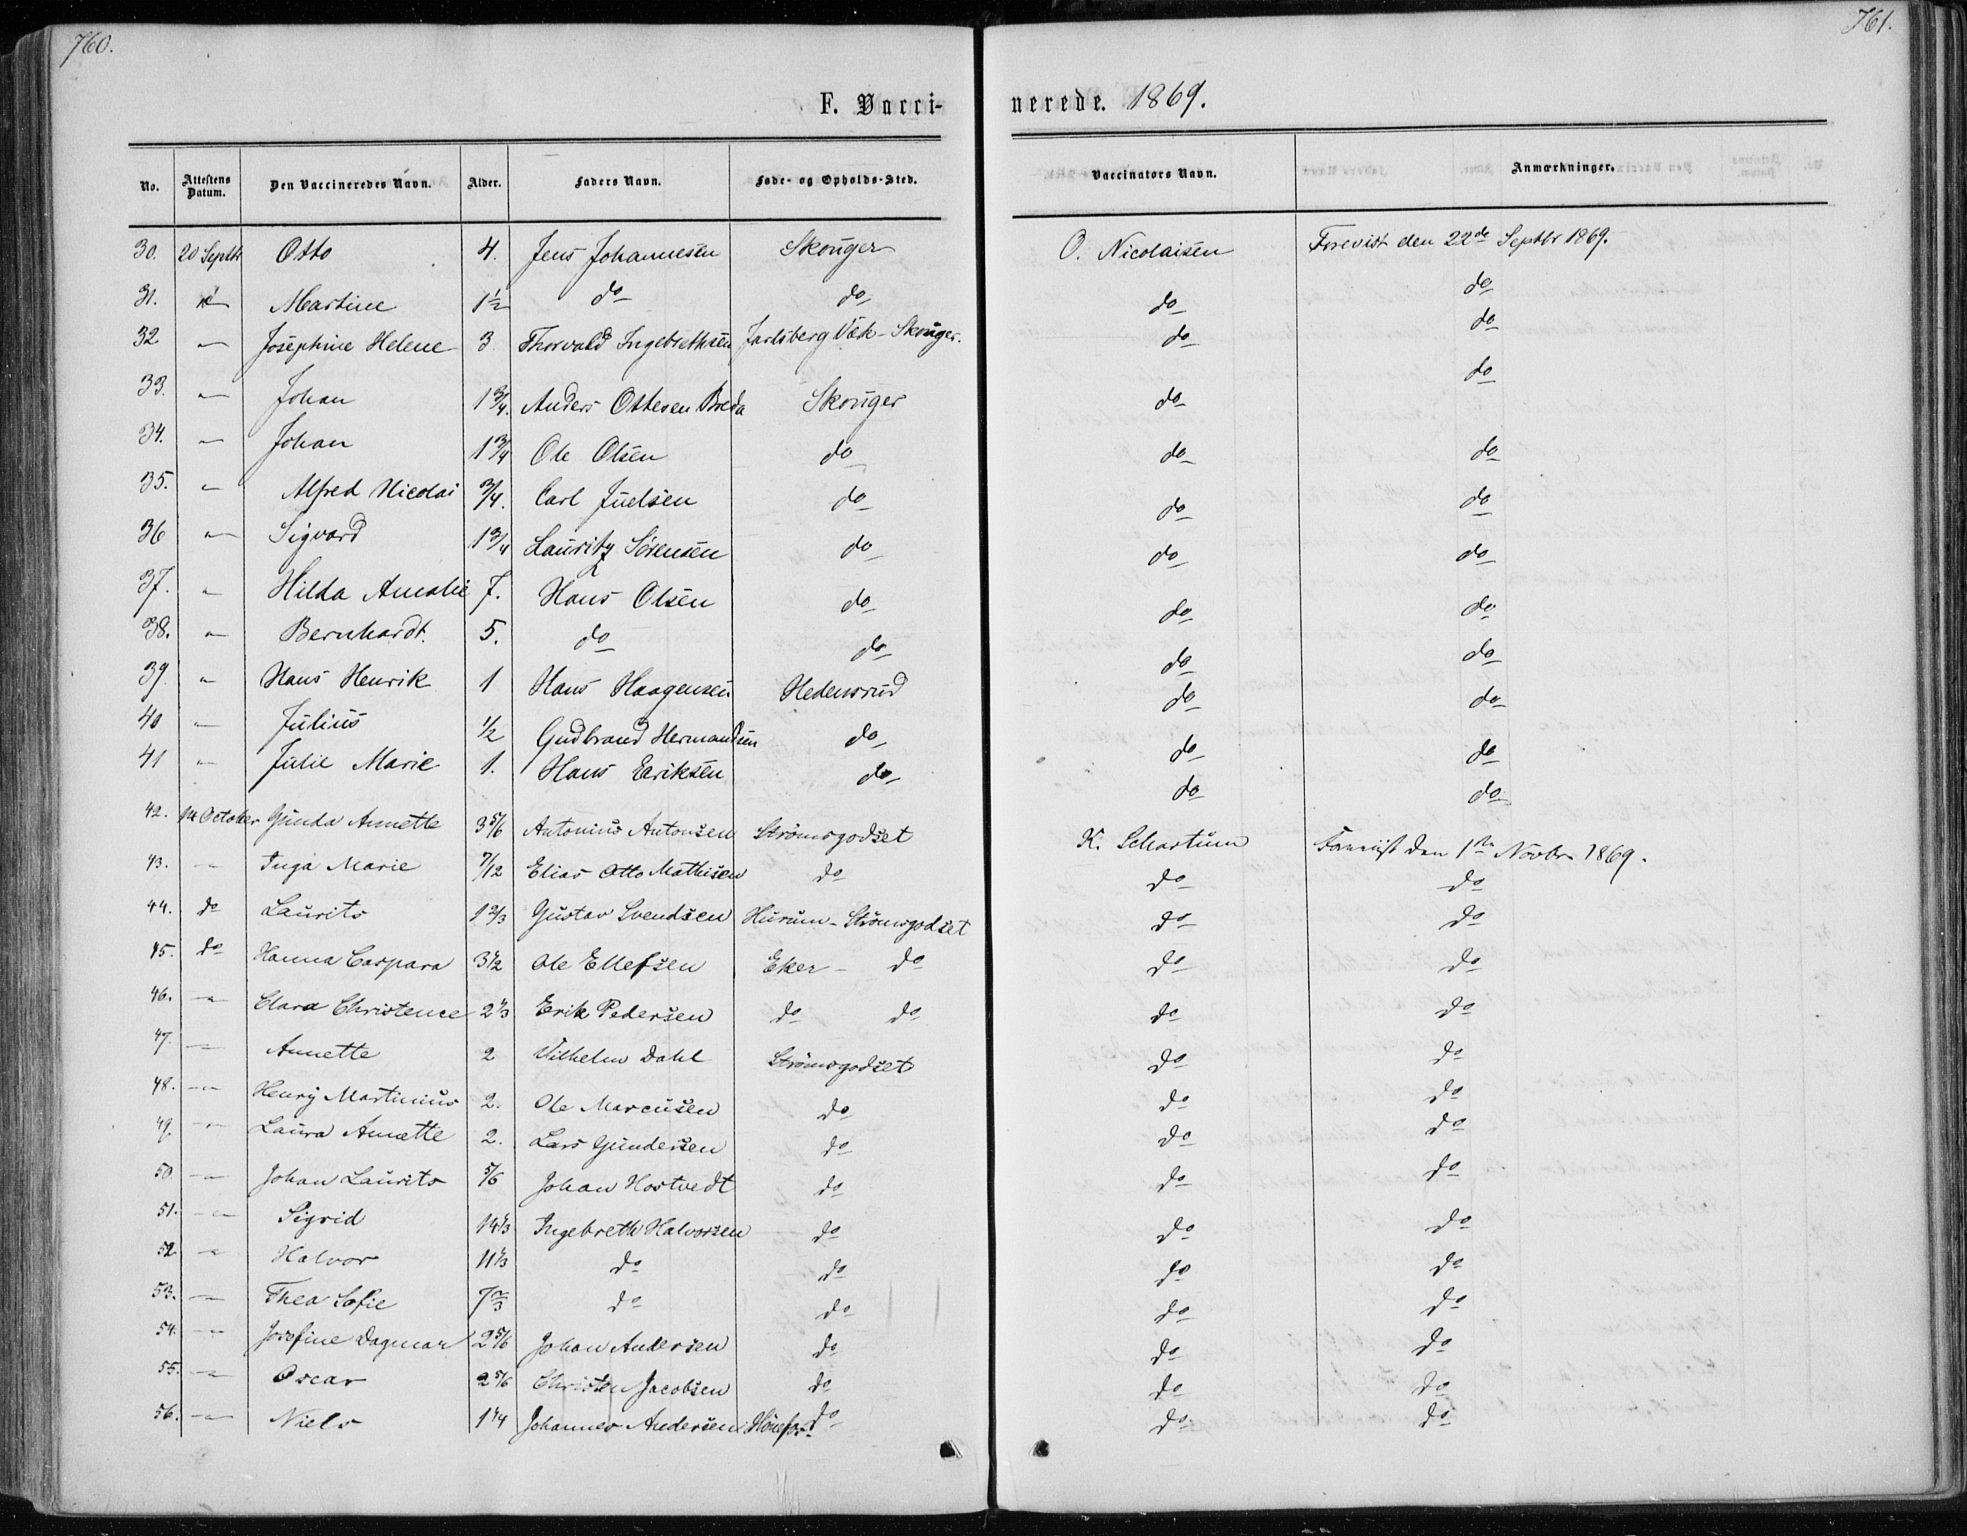 760.
761.
F. Vacci-nerede. 1869.
No. | Attestens Datum. | Den Vaccineredes Navn. | Alder. | Faders Navn. | Føde- og Opholds-Sted. | Vaccinators Navn. | Anmærkninger.
30. 20 Septbr Otto 4. Jens Johannesen Skouger O. Nicolaisen Forevist den 22de Septbr 1869.
31. Martine 1 1/2 do do do do
32 " Josephine Helene 3 Thorvald Ingebrethsen Jarlsberg Væk - Skouger. do do
33. " Johan 1 3/4. Anders Ottesen Breda Skouger do do
34. " Johan 1 3/4 Ole Olsen do do do
35. " Alfred Nicolai 3/4. Carl Juelsen do do do
36 " Sigvard 1 3/4 Lauritz Sørensen do do do
37. " Hilda Amalie 7. Hans Olsen do do do
38. " Bernhardt. 5. do do do do
39 " Hans Henrik 1 Hans Haagensen Hedensrud do do
40 " Julius 1/2 Gudbrand Hermandsen do do do
41 " Julie Marie 1. Hans Eeriksen do do do
42. 14 October Gunda Annette 3 5/6 Antonius Antonsen Strømsgodset K. Schartum Forevist den 1ste Novbr 1869.
43. " Inga Marie 7/12 Elias Otto Mathisen do do do
44. do Laurits 1 2/3 Gustav Svendsen Hurum - Strømsgodset do do
45. do Hanna Caspara 3 1/2 Ole Ellefsen Eker - do do do
46. " Clara Christence 2 1/3 Erik Pedersen do do do do
47. " Annette 2 Vilhelm Dahl Strømsgodset do do
48. " Henry Martinius 2. Ole Marcusen do do do
49. " Laura Annette 2. Lars Gundersen do do do
50. " Johan Laurits 5/6 Johan Hostvedt do do do
51. " Sigrid 14 1/3 Ingebreth Halvorsen do do do
52 " Halvor 11 1/3 do do do do
53. " Thea Sofie 7 2/3 do do do do
54. " Josefine Dagmar 2 5/6 Johan Andersen do do do
55. " Oscar 2 5/6 Christen Jacobsen do do do
56. " Niels 1 1/4 Johannes Andersen Hønefos - do do do